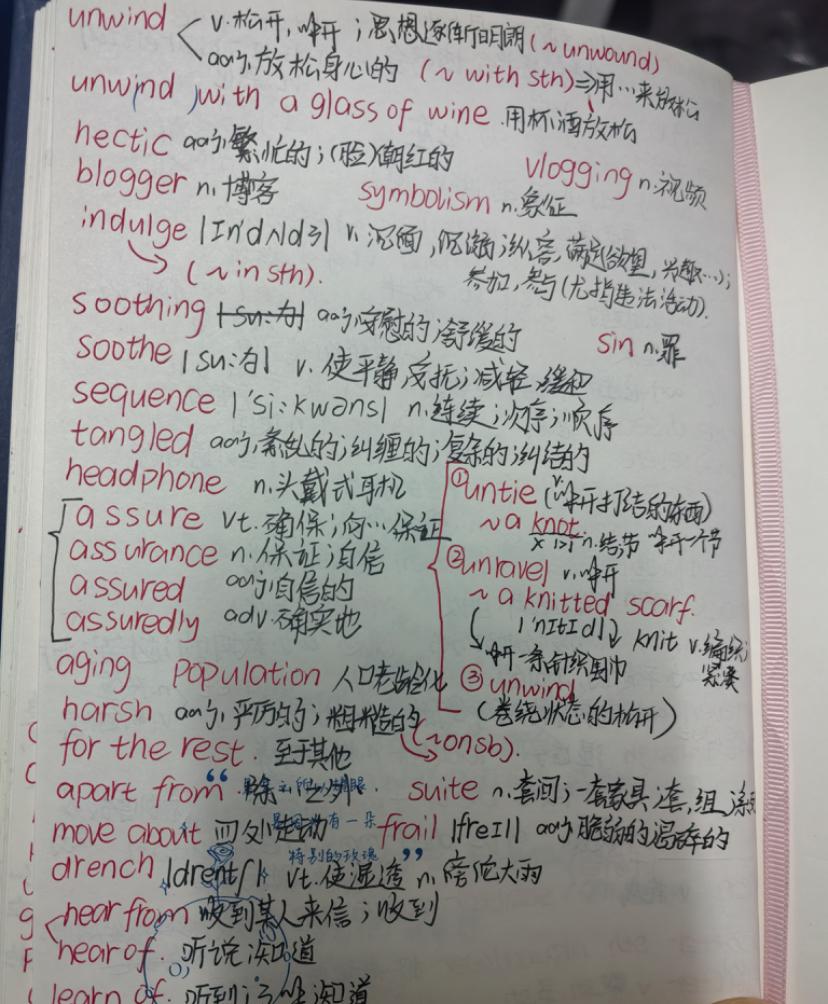 unwind v.松开,解开;思想逐渐明朗(~unwound)
adj.放松身心的 (~with sth)⇒用…来放松
unwind with a glass of wine 用杯酒放松
hectic adj.繁忙的;(脸)潮红的
vlogging n.视频
blogger n.博客 symbolism n.象征
indulge |In'dʌldʒ| v.沉湎,沉溺;纵容,满足欲望,兴趣…);
(~in sth). 参加,参与(尤指违法活动).
soothing adj.安慰的;舒缓的 sin n.罪
soothe |su:ð| v.使平静,安抚;减轻,缓和
sequence |'si:kwəns| n.连续;次序;顺序
tangled adj.紊乱的;纠缠的;复杂的;纠结的
headphone n.头戴式耳机
①untie (v.解开打结的东西)
assure vt.确保;向…保证
~a knot n.结,节 解开一个节
assurance n.保证;自信
②unravel v.解开
assured adj.自信的
~a knitted scarf.
assuredly adv.确实地
|'nItId| knit v.编织;
解开一条针织围巾
aging population 人口老龄化
③unwind
harsh adj.严厉的;粗糙的
(卷绕状态的松开)
(~on sb).
for the rest. 至于其他
apart from 除…之外 suite n.套间;一套家具;套,组
move about 四处走动 frail |freIl| adj.脆弱的
有一朵
特别的玫瑰”
drench |drentʃ| vt.使湿透 n.倾盆大雨
hear from 收到某人来信;收到
hear of. 听说;知道
learn of. 听到;知道